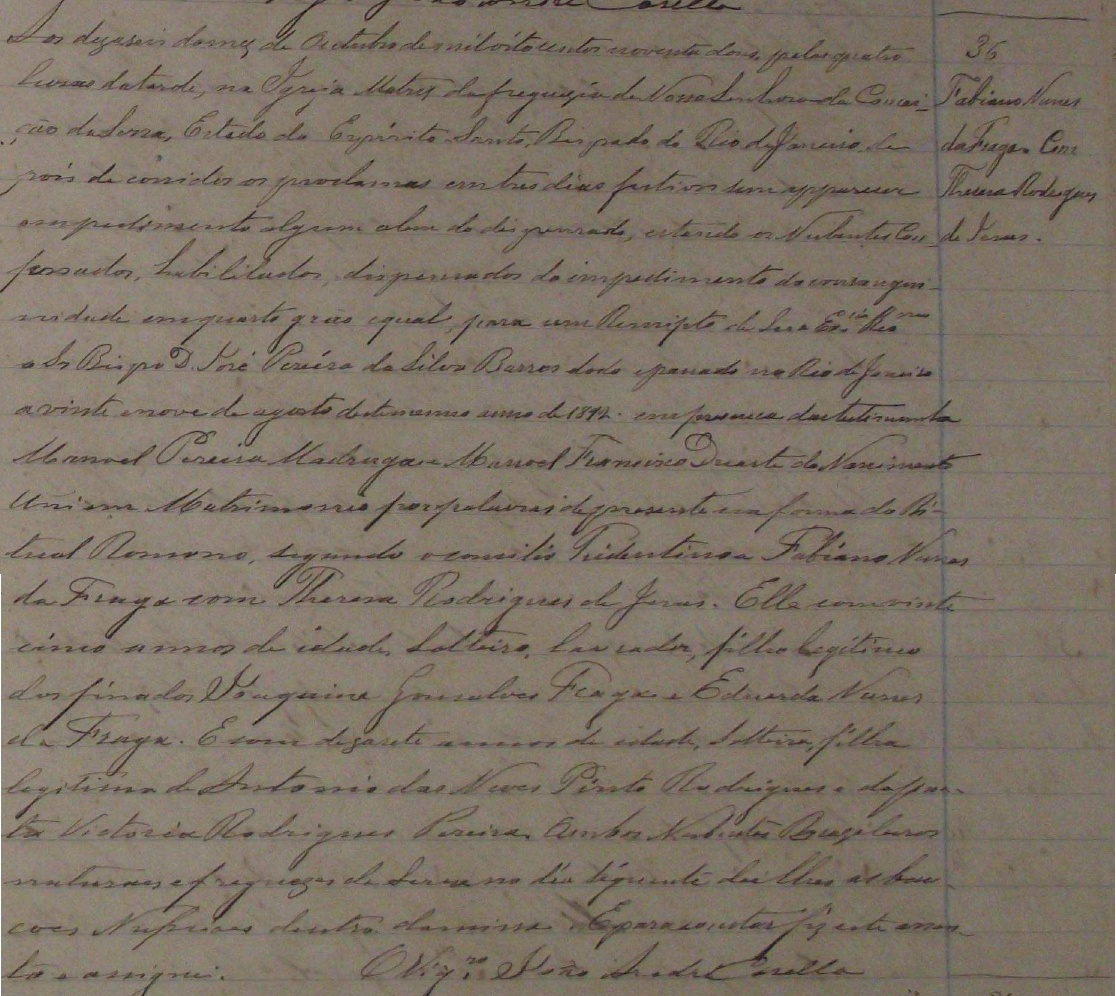 João André Casella
Aos dezaseis do mez de Outubro de mil oitocentos noventa dous, pelas quatro
horas da tarde, na Igreja Matriz da freguezia de Nossa Senhora da Concei-
ção da Serra, Estado do Espirito Santo, Bispado do Rio de Janeiro, de
pois de corridos os proclamas em tres dias festivos sem apparecer
empedimento algum alem do dispensado, estando os Nubentes Con-
fessados, habilitados, dispensados do impedimento da consangui-
nidade em quarto gráo egual, para um Rescripto de Sua Exciª Revma
o Sr Bispo D. José Pereira da Silva Barros dado e passado no Rio de Janeiro
a vinte e nove de agosto deste mesmo anno de 1892. em presenca das testemunha
Manoel Pereira Madruga e Manoel Francisco Duarte do Nascimento
Uni em Matrimonio por palavras de presente na forma do Ri-
tual Romano, segundo o concilio Tridentino a Fabiano Nunes
da Fraga com Thereza Rodrigues de Jesus. Elle com vinte
cinco annos de idade, Solteiro, lavrador, filho legitimo
dos finados Joaquina Gonsalves Fraga e Eduarda Nunes
da Fraga. E com dezasete annos de idade, Solteira, filha
legitima de Antonio das Neves Pinto Rodrigues e da fina-
ta Victoria Rodrigues Pereira. Ambos Nubentes Brazileiros
naturaes e freguezes da Serra no dia seguente dei lhes as ben-
coes Nupciaes dentro da missa. E para constar fiz este assen-
to e assignei. O Vigro João André Casella
36
Fabiano Nunes
da Fraga Com
Thereza Rodrigues
de Jesus.